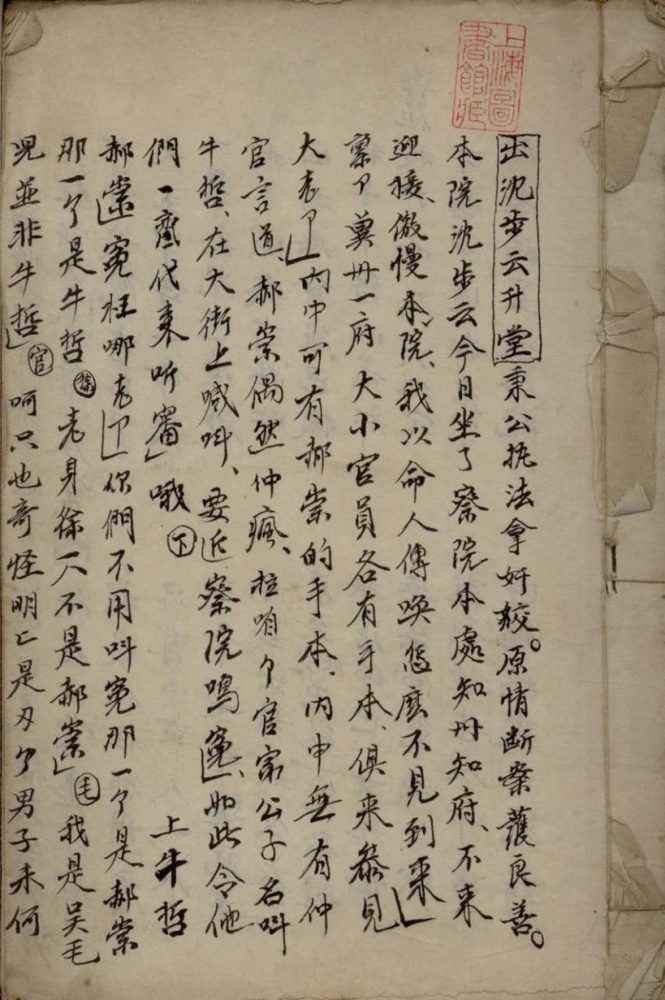 上海圖書館藏
出沈步云升堂秉公执法拿奸狡。原情断案護良善。
本院沈步云今日坐了察院本處知州知府、不来
迎接、傲慢本院、我以命人傳唤怎庅不見到来
禀卩冀州一府大小官員各有手本、俱来叅見
大老卩内中可有郝崇的手本、内中無有仲
官言道郝崇偶然仲瘋、拉咱个官家公子名叫
牛哲、在大街上喊叫、要近察院鳴寃、如此令他
們一齊代来听審哦下上牛哲
郝崇寃枉哪老卩你們不用叫寃那一个是郝崇
那一个是牛哲徐老身徐一人不是郝崇毛我是吴毛
児並非牛哲官呵只也奇怪明匕是刃个男子未何